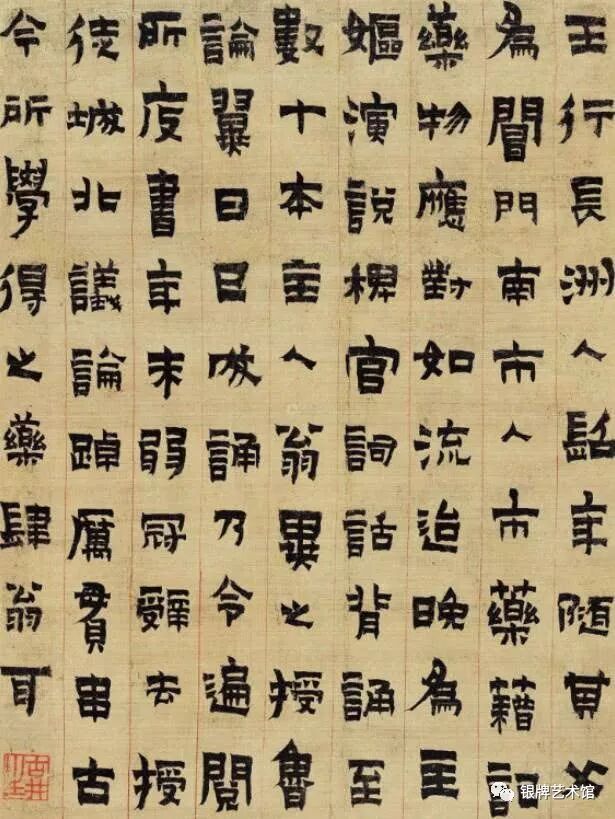 王行長洲人髫年隨其父
為閶門南市人市藥籍記
藥物應對如流迨晚為主
嫗演說稗官詞話背誦至
數十本主人翁異之授魯
論翼日已成誦乃令遍閱
所庋書年未弱冠辭去授
徒城北議論踔厲貫串古
今所學得之藥肆翁耳
银牌艺术馆